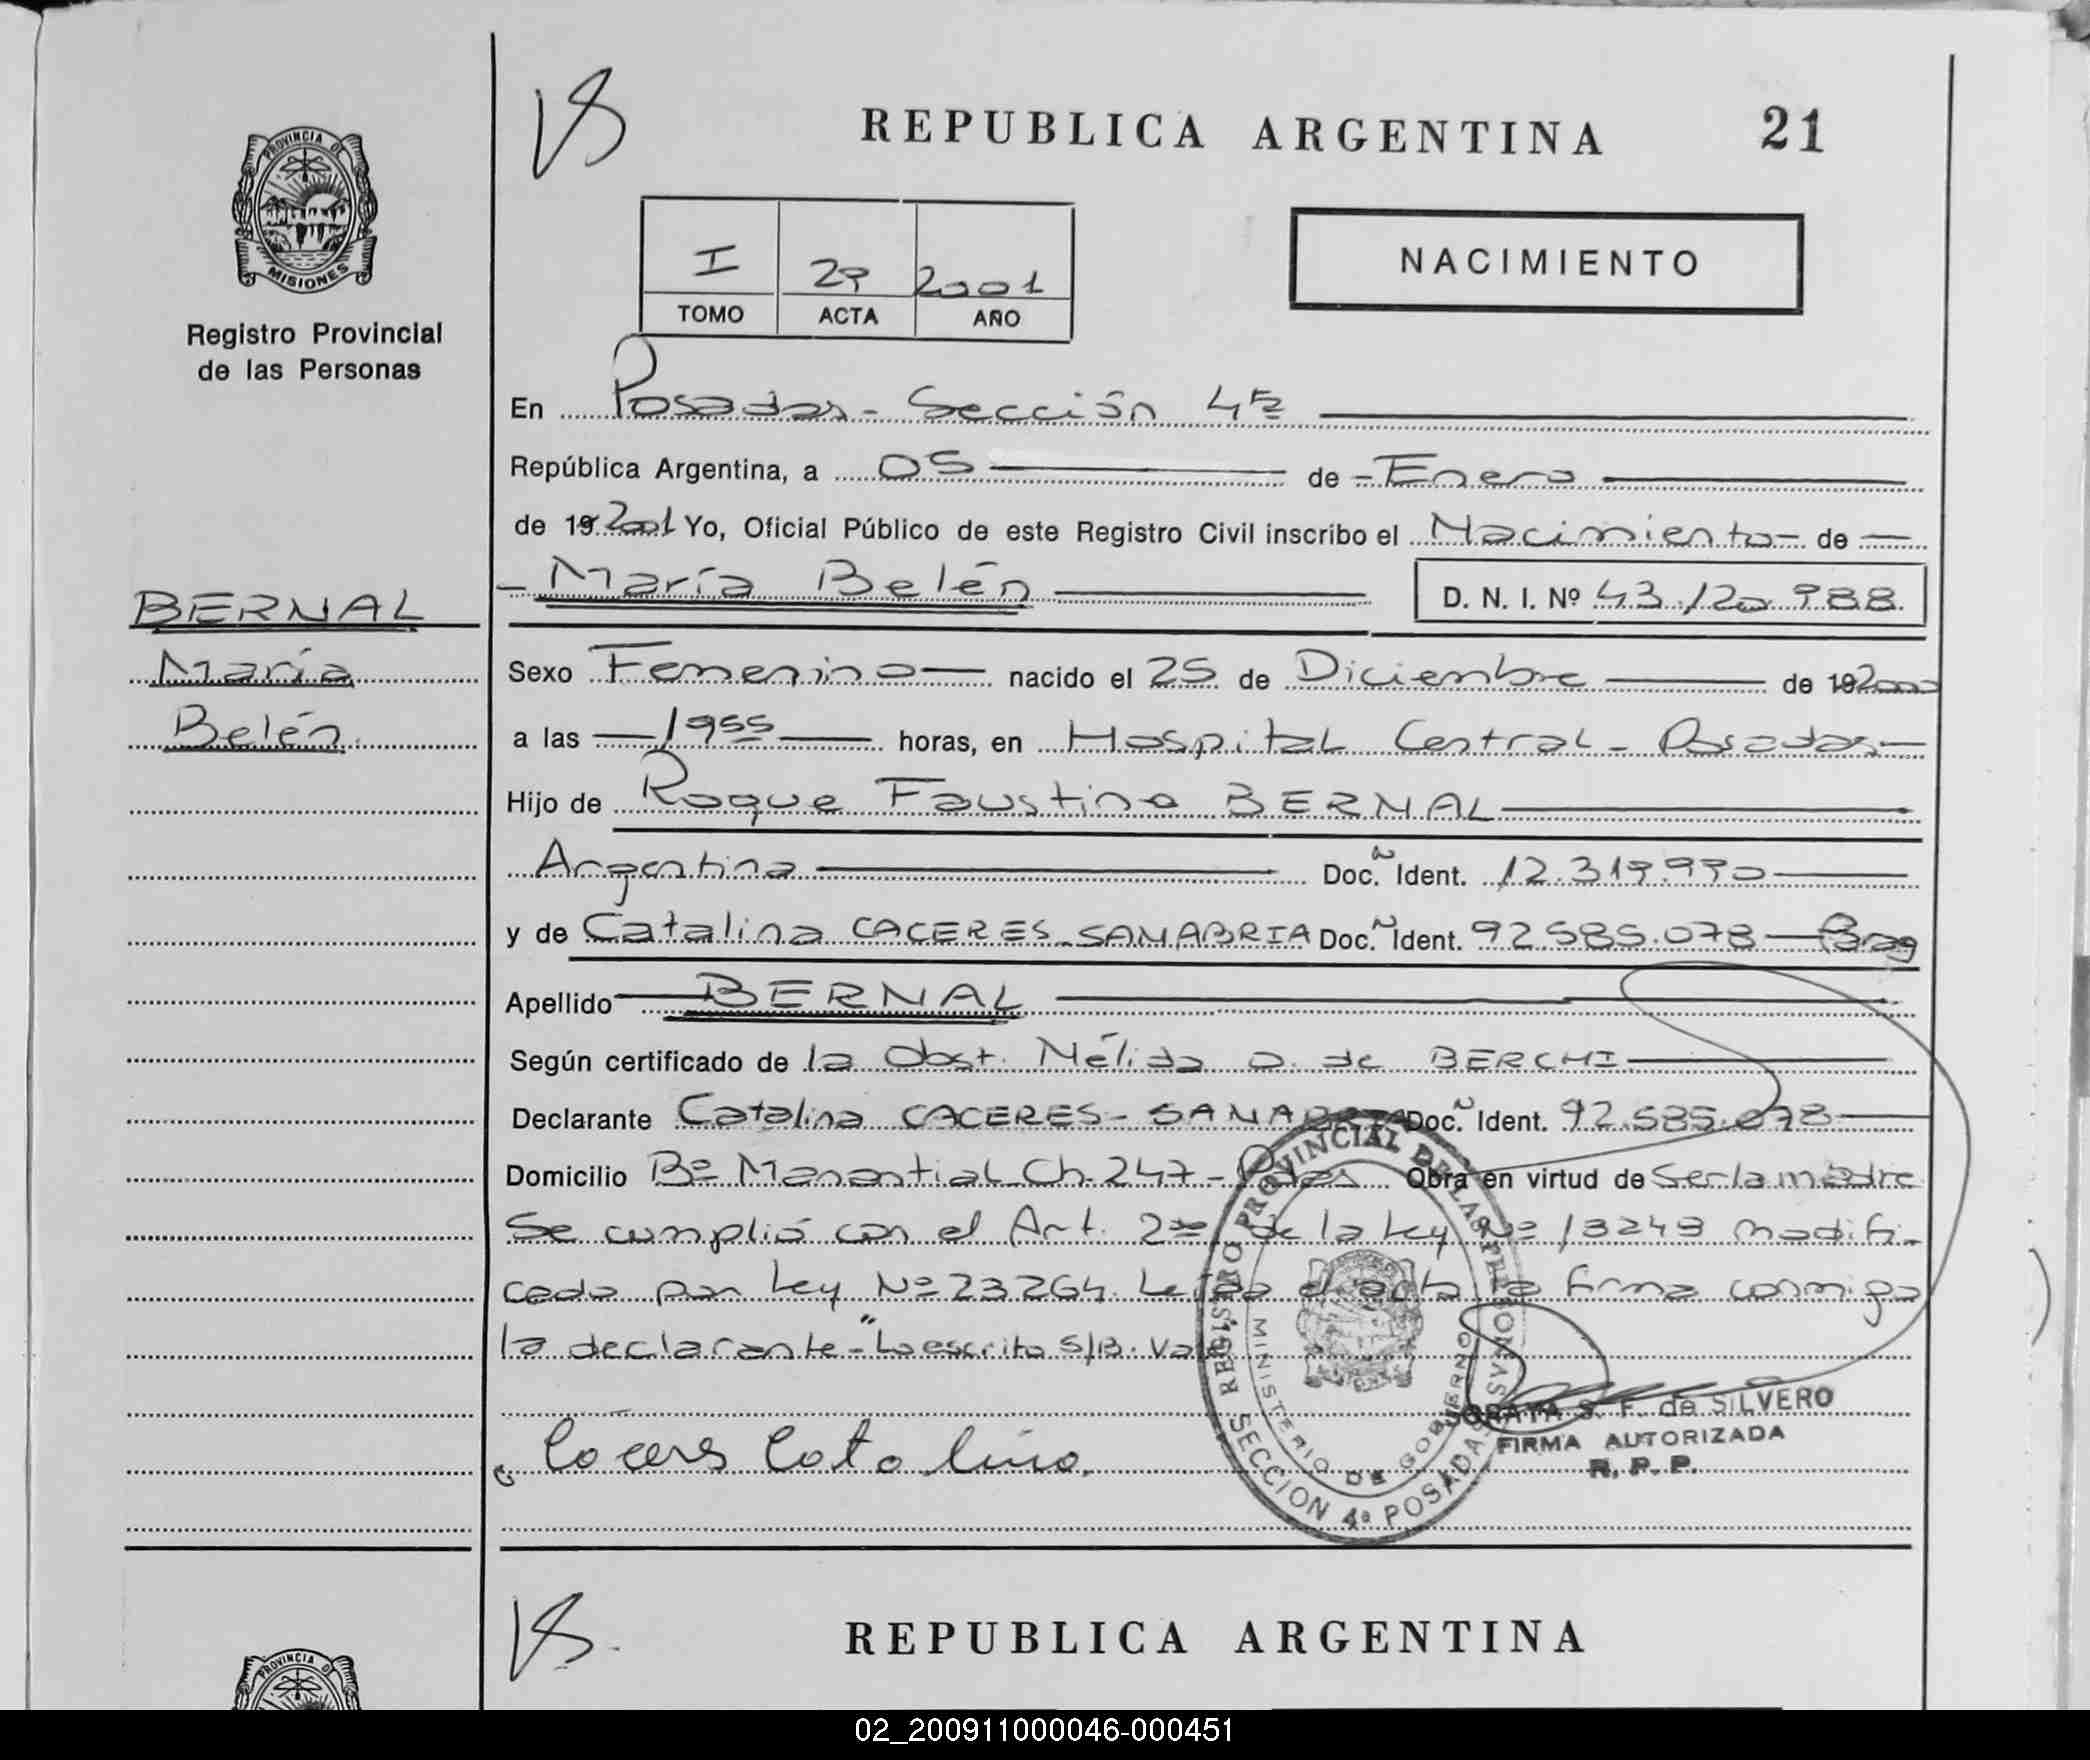 REPUBLICA ARGENTINA 21
PROVINCIA DE
MISIONES
Registro Provincial
de las Personas
I 29 2001
TOMO ACTA AÑO
NACIMIENTO
En Posadas - Sección 4ª
República Argentina, a 05 de Enero
de 19 2001 Yo, Oficial Público de este Registro Civil inscribo el Nacimiento de
BERNAL
María
Belén
María Belén D. N. I. Nº 43.120.988
Sexo Femenino nacido el 25 de Diciembre de 19 2000
a las 19 55 horas, en Hospital Central - Posadas
Hijo de Roque Faustino BERNAL
Argentina Doc. Ident. 12.319.990
y de Catalina CACERES-SANABRIA Doc. Ident. 92.585.078
Apellido BERNAL
Según certificado de la Obst. Nélida O. de BERCHI
Declarante Catalina CACERES-SANABRIA Doc. Ident. 92.585.078
Domicilio Bº Manantial Ch. 247 - Pdas Obra en virtud de ser la madre
Se cumplió con el Art. 2do de la Ley Nº 13249 modifi-
cado por Ley Nº 23264. Leída el acta la firma conmigo
la declarante - "Lo escrito S/B. Vale
Caceres Catalina
REGISTRO PROVINCIAL DE LAS PERSONAS
MINISTERIO DE GOBIERNO
SECCION 4ª POSADAS
SORAYA S. F. de SILVERO
FIRMA AUTORIZADA
R. P. P.
REPUBLICA ARGENTINA
PROVINCIA D
02_200911000046-000451